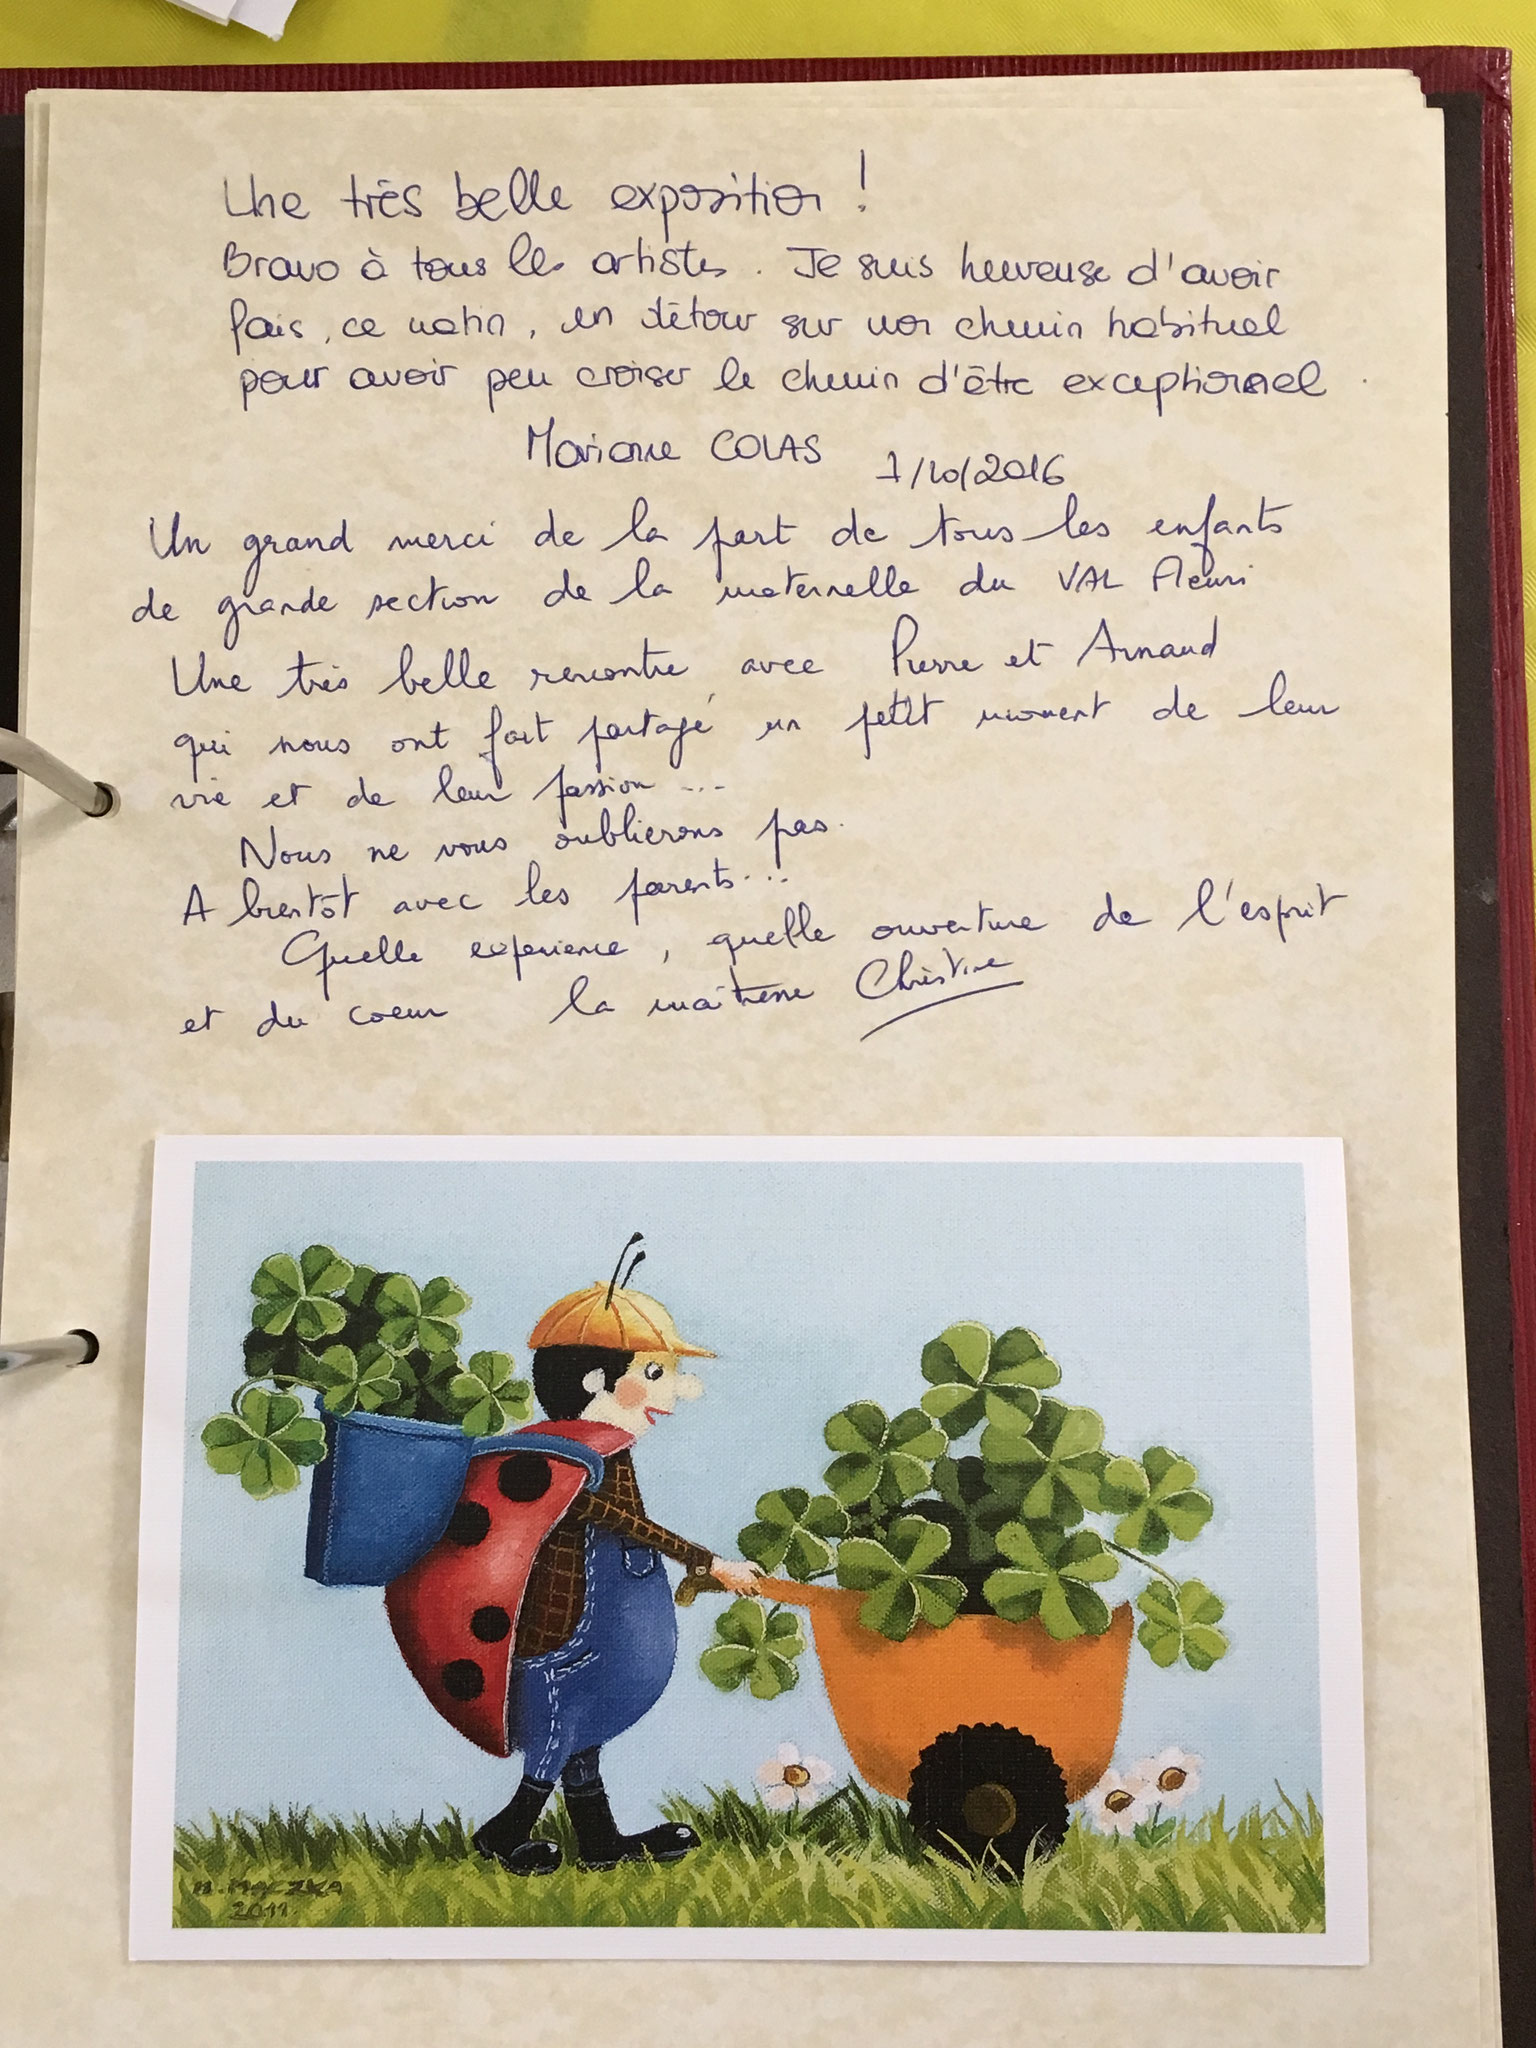 Une très belle exposition !
Bravo à tous les artistes. Je suis heureuse d'avoir
fais, ce matin, un détour sur mon chemin habituel
pour avoir peu croiser le chemin d'être exceptionnel.
Marianne COLAS 7/10/2016
Un grand merci de la part de tous les enfants
de grande section de la maternelle du VAL Fleuri
Une très belle rencontre avec Pierre et Arnaud
qui nous ont fait partagé un petit moment de leur
vie et de leur passion ...
Nous ne vous oublierons pas.
A bientôt avec les parents...
Quelle experience, quelle ouverture de l'esprit
et du coeur la maîtresse Christine
M. MACZKA
2011.